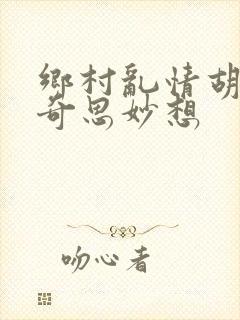 鄉村亂情胡
奇思妙想
吻心者